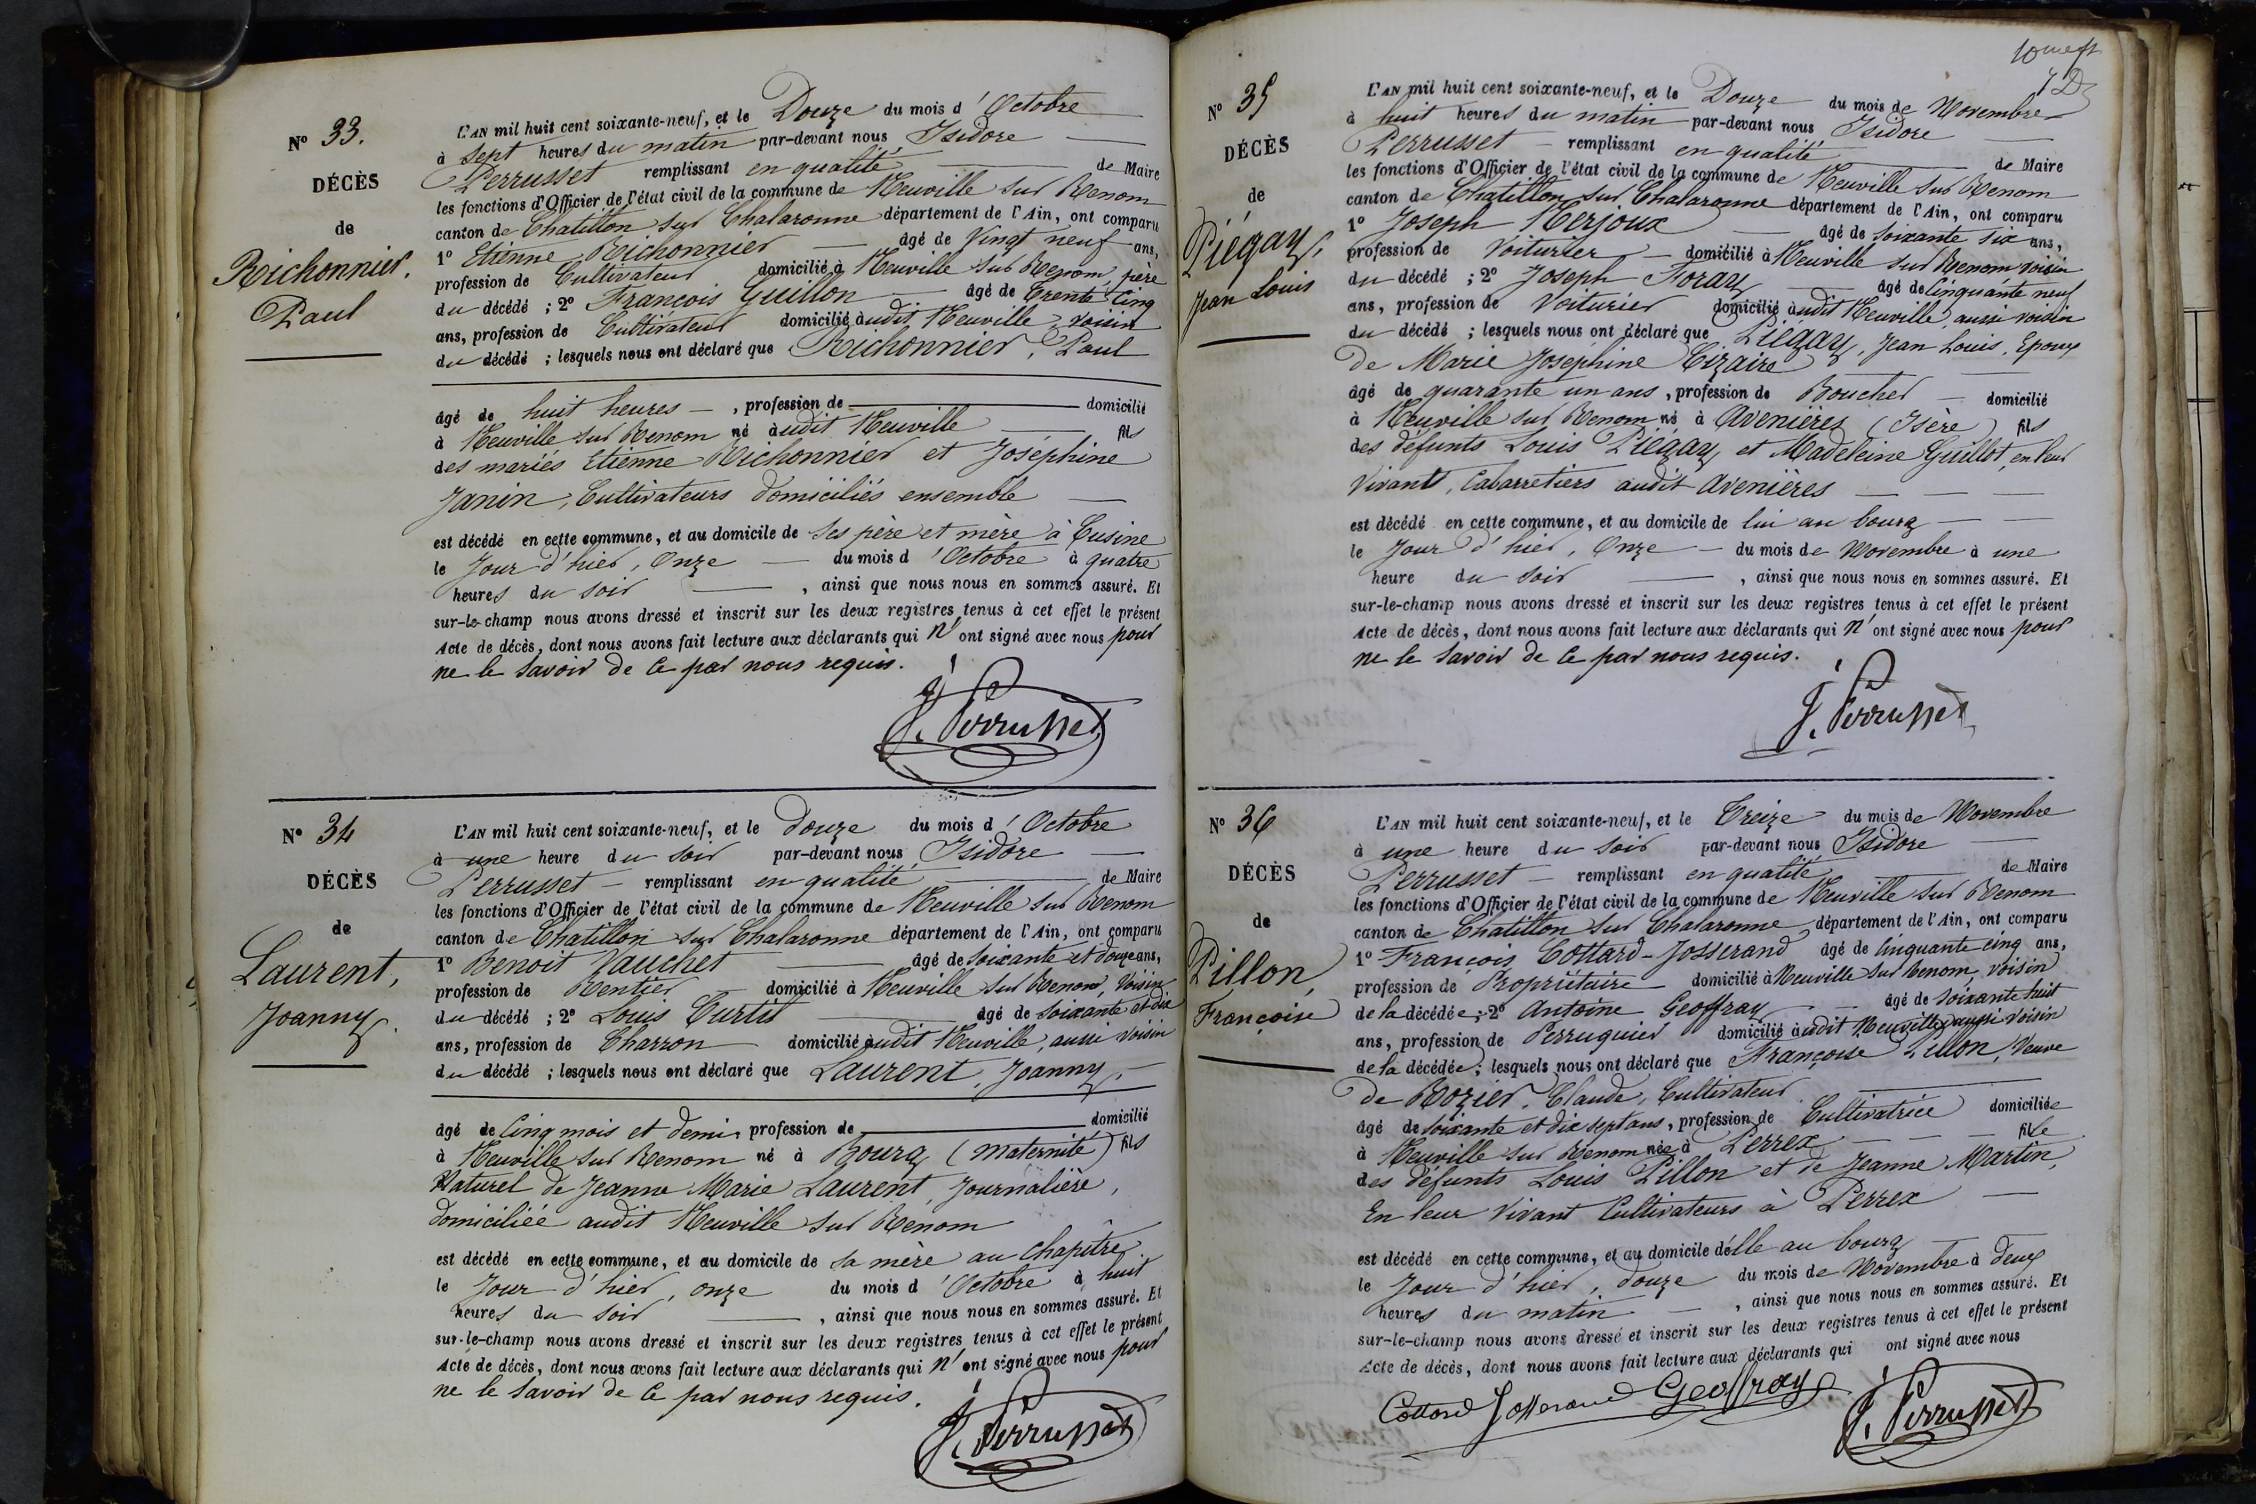 N° 33.
DÉCÈS
de
Richonnier,
Paul
L'AN mil huit cent soixante-neuf, et le Douze du mois d'Octobre
à sept heures du matin par-devant nous Isidore
Perrusset remplissant en qualité de Maire
les fonctions d'Officier de l'état civil de la commune de Neuville sur Renom
canton de Chatillon sur Chalaronne département de l'Ain, ont comparu
1° Etienne Richonnier âgé de Vingt neuf ans,
profession de Cultivateur domicilié à Neuville sur Renom, père
du décédé ; 2° François Guillon âgé de Trente cinq
ans, profession de Cultivateur domicilié audit Neuville voisin
du décédé ; lesquels nous ont déclaré que Richonnier, Paul
âgé de huit heures , profession de domicilié
à Neuville sur Renom né audit Neuville fils
des mariés Etienne Richonnier et Joséphine
Janin, Cultivateurs domiciliés ensemble
est décédé en cette commune, et au domicile de ses père et mère à Cusine
le Jour d'hier, Onze du mois d'Octobre à quatre
heures du soir , ainsi que nous nous en sommes assuré. Et
sur-le-champ nous avons dressé et inscrit sur les deux registres tenus à cet effet le présent
Acte de décès, dont nous avons fait lecture aux déclarants qui n'ont signé avec nous pour
ne le savoir de ce par nous requis.
J. Perrusset
N° 34
DÉCÈS
de
Laurent,
Joanny.
L'AN mil huit cent soixante-neuf, et le douze du mois d'Octobre
à une heure du soir par-devant nous Isidore
Perrusset remplissant en qualité de Maire
les fonctions d'Officier de l'état civil de la commune de Neuville sur Renom
canton de Chatillon sur Chalaronne département de l'Ain, ont comparu
1° Benoit Vauchet âgé de soixante et douze ans,
profession de Rentier domicilié à Neuville sur Renom, Voisin
du décédé ; 2° Louis Curtil âgé de soixante et dix
ans, profession de Charron domicilié audit Neuville, aussi voisin
du décédé ; lesquels nous ont déclaré que Laurent, Joanny,
âgé de cinq mois et demi, profession de domicilié
à Neuville sur Renom né à Bourg (maternité) fils
Naturel de Jeanne Marie Laurent, Journalière,
domiciliée audit Neuville sur Renom
est décédé en cette commune, et au domicile de sa mère au Chapître
le Jour d'hier, onze du mois d'Octobre à huit
heures du soir , ainsi que nous nous en sommes assuré. Et
sur-le-champ nous avons dressé et inscrit sur les deux registres tenus à cet effet le présent
Acte de décès, dont nous avons fait lecture aux déclarants qui n'ont signé avec nous pour
ne le savoir de ce par nous requis.
J. Perrusset
N° 35
DÉCÈS
de
Piégay,
Jean Louis
L'AN mil huit cent soixante-neuf, et le Douze du mois de Novembre
à huit heures du matin par-devant nous Isidore
Perrusset remplissant en qualité de Maire
les fonctions d'Officier de l'état civil de la commune de Neuville sur Renom
canton de Chatillon sur Chalaronne département de l'Ain, ont comparu
1° Joseph Nerjoux âgé de soixante six ans,
profession de Voiturier domicilié à Neuville sur Renom voisin
du décédé ; 2° Joseph Foray âgé de Cinquante neuf
ans, profession de Voiturier domicilié audit Neuville, aussi voisin
du décédé ; lesquels nous ont déclaré que Piégay, Jean Louis, Epoux
de Marie Joséphine Cizaire
âgé de quarante un ans, profession de Boucher domicilié
à Neuville sur Renom né à Avenières (Isère) fils
des défunts Louis Piégay et Madeleine Guillot, en leur
Vivant, Cabarretiers audit Avenières
est décédé en cette commune, et au domicile de lui au bourg
le Jour d'hier, Onze du mois de Novembre à une
heure du soir , ainsi que nous nous en sommes assuré. Et
sur-le-champ nous avons dressé et inscrit sur les deux registres tenus à cet effet le présent
Acte de décès, dont nous avons fait lecture aux déclarants qui n'ont signé avec nous pour
ne le savoir de ce par nous requis.
J. Perrusset
N° 36
DÉCÈS
de
Pillon,
Françoise
L'AN mil huit cent soixante-neuf, et le Treize du mois de Novembre
à une heure du soir par-devant nous Isidore
Perrusset remplissant en qualité de Maire
les fonctions d'Officier de l'état civil de la commune de Neuville sur Renom
canton de Chatillon sur Chalaronne département de l'Ain, ont comparu
1° François Cottard-Josserand âgé de Cinquante cinq ans,
profession de Propriétaire domicilié à Neuville sur Renom, voisin
de la décédée ; 2° Antoine Geoffray âgé de soixante huit
ans, profession de Perruquier domicilié audit Neuville aussi voisin
de la décédée ; lesquels nous ont déclaré que Françoise Pillon, Veuve
de Rozier, Claude, Cultivateur
âgé de soixante et dix sept ans, profession de Cultivatrice domiciliée
à Neuville sur Renom née à Perrex fille
des défunts Louis Pillon et de Jeanne Martin,
En leur vivant Cultivateurs à Perrex
est décédé en cette commune, et au domicile d'elle au bourg
le Jour d'hier, douze du mois de Novembre à deux
heures du matin , ainsi que nous nous en sommes assuré. Et
sur-le-champ nous avons dressé et inscrit sur les deux registres tenus à cet effet le présent
Acte de décès, dont nous avons fait lecture aux déclarants qui ont signé avec nous
Cottard Josserand Geoffray J. Perrusset